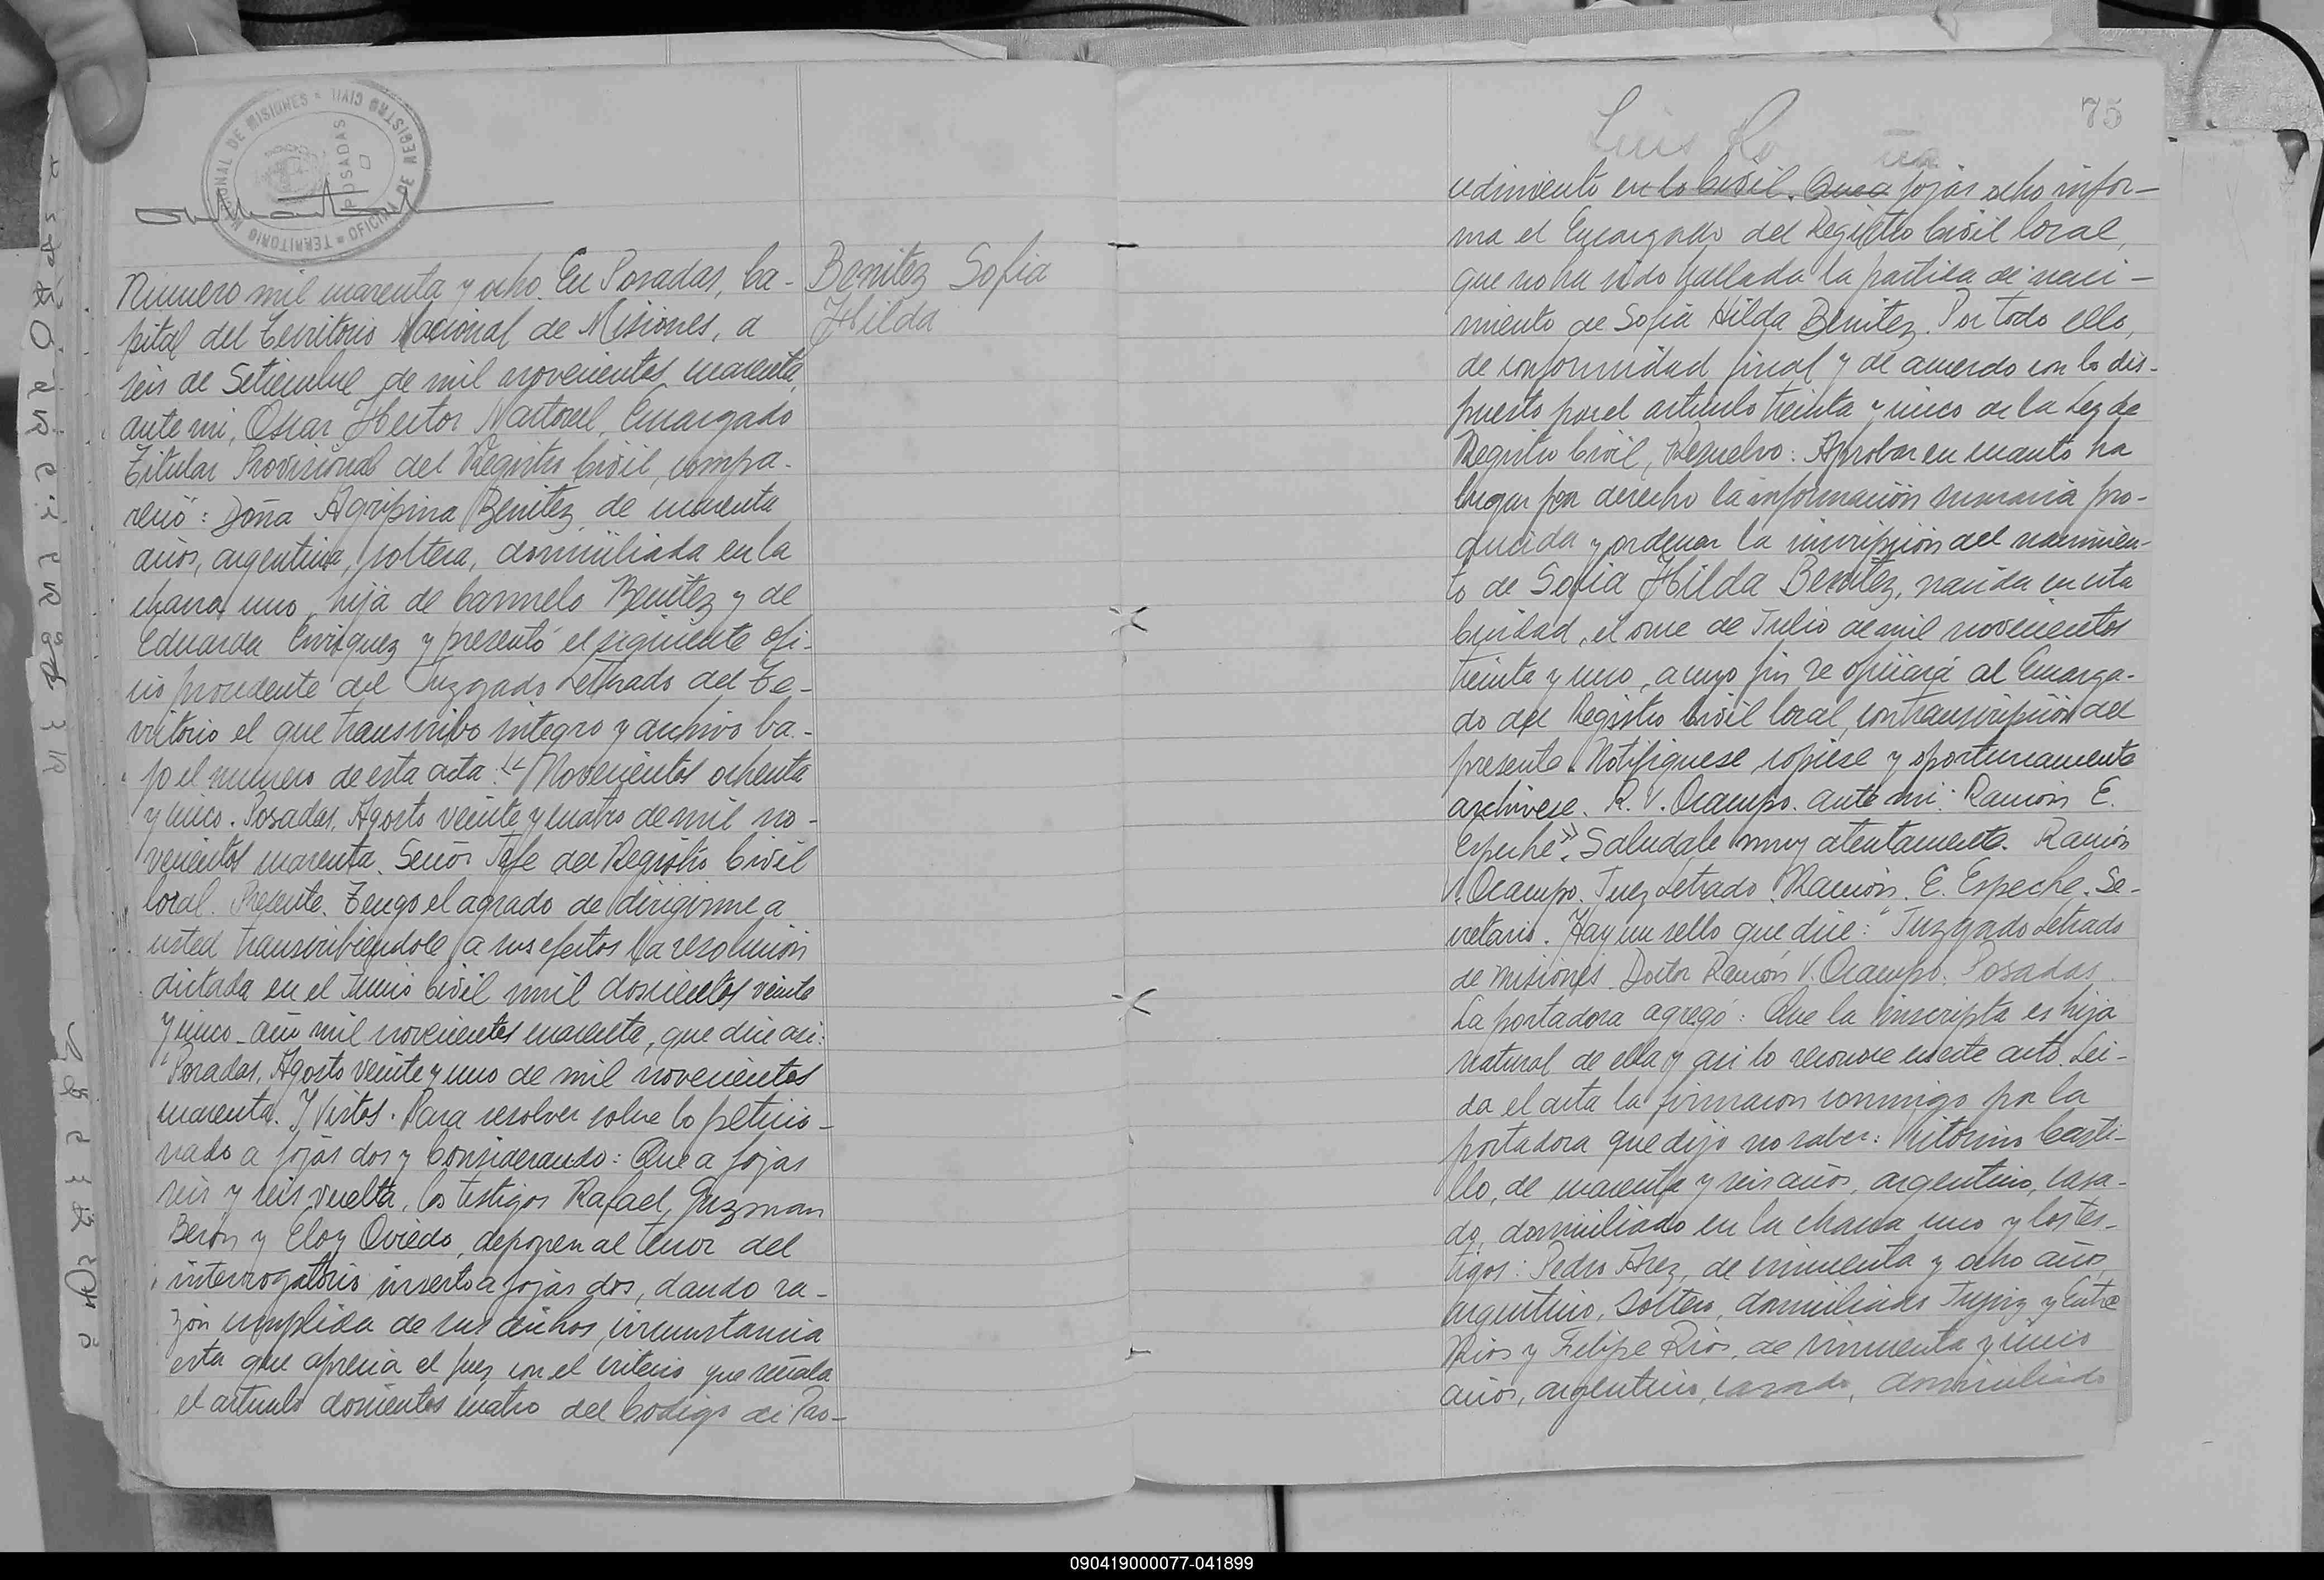 TERRITORIO NACIONAL DE MISIONES = OFICINA DE REGISTRO CIVIL
POSADAS
Benitez Sofia
Hilda
Numero mil cuarenta y ocho. En Posadas, Ca-
pital del Territorio Nacional de Misiones, a
seis de Setiembre de mil novecientos cuarenta,
ante mi, Oscar Hector Martorell, Encargado
Titular Provisional del Registro Civil, compa-
reció: Doña Agripina Benitez, de cuarenta
años, argentina, soltera, domiciliada en la
chacra uno, hija de Carmelo Benitez y de
Eduarda Enriquez y presentó el siguiente ofi-
cio procedente del Juzgado Letrado del Te-
rritorio el que transcribo integro y archivo ba-
jo el numero de esta acta: "Novecientos ochenta
y cinco. Posadas, Agosto veinte y cuatro de mil no-
vecientos cuarenta. Señor Jefe del Registro Civil
local. Presente. Tengo el agrado de dirigirme a
usted transcribiendole a sus efectos la resolución
dictada en el Juicio Civil mil doscientos veinte
y cinco - año mil novecientos cuarenta, que dice asi:
"Posadas, Agosto veinte y uno de mil novecientos
cuarenta. Y Vistos. Para resolver sobre lo peticio-
nado a fojas dos y Considerando: Que a fojas
seis y seis vuelta, los testigos Rafael Guzman
Beron y Eloy Oviedo, deponen al tenor del
interrogatorio inserto a fojas dos, dando ra-
zón cumplida de sus dichos, circunstancia
esta que aprecia el Juez con el criterio que señala
el articulo doscientos cuatro del Codigo de Pro-
75
Luis
cedimiento en lo Civil. Que a fojas ocho infor-
ma el Encargado del Registro Civil local,
que no ha sido hallada la partida de naci-
miento de Sofia Hilda Benitez. Por todo ello,
de conformidad fiscal y de acuerdo con lo dis-
puesto por el articulo treinta y cinco de la Ley de
Registro Civil, Resuelvo: Aprobar en cuanto ha
lugar por derecho la información sumaria pro-
ducida y ordenar la inscripción del nacimien-
to de Sofia Hilda Benitez, nacida en esta
Ciudad, el once de Julio de mil novecientos
treinta y uno, a cuyo fin se oficiará al Encarga-
do del Registro Civil local, con transcripción del
presente. Notifiquese copiese y oportunamente
archivese. R. V. Ocampo. ante mi: Ramón E.
Espeche". Saludale muy atentamente. Ramón
V. Ocampo. Juez Letrado. Ramón. E. Espeche. Se-
cretario. Hay un sello que dice: "Juzgado Letrado
de Misiones. Doctor Ramón V. Ocampo. Posadas.
La portadora agregó: Que la inscripta es hija
natural de ella y asi lo reconoce en este acto. Lei-
da el acta la firmaron conmigo por la
portadora que dijo no saber: Vitorino Casti-
llo, de cuarenta y seis años, argentino, casa-
do, domiciliado en la chacra uno y los tes-
tigos: Pedro Arez, de cincuenta y ocho años,
argentino, soltero, domiciliado Junin y Entre
Rios y Felipe Rios, de cincuenta y cinco
años, argentino, casado, domiciliado
090419000077-041899